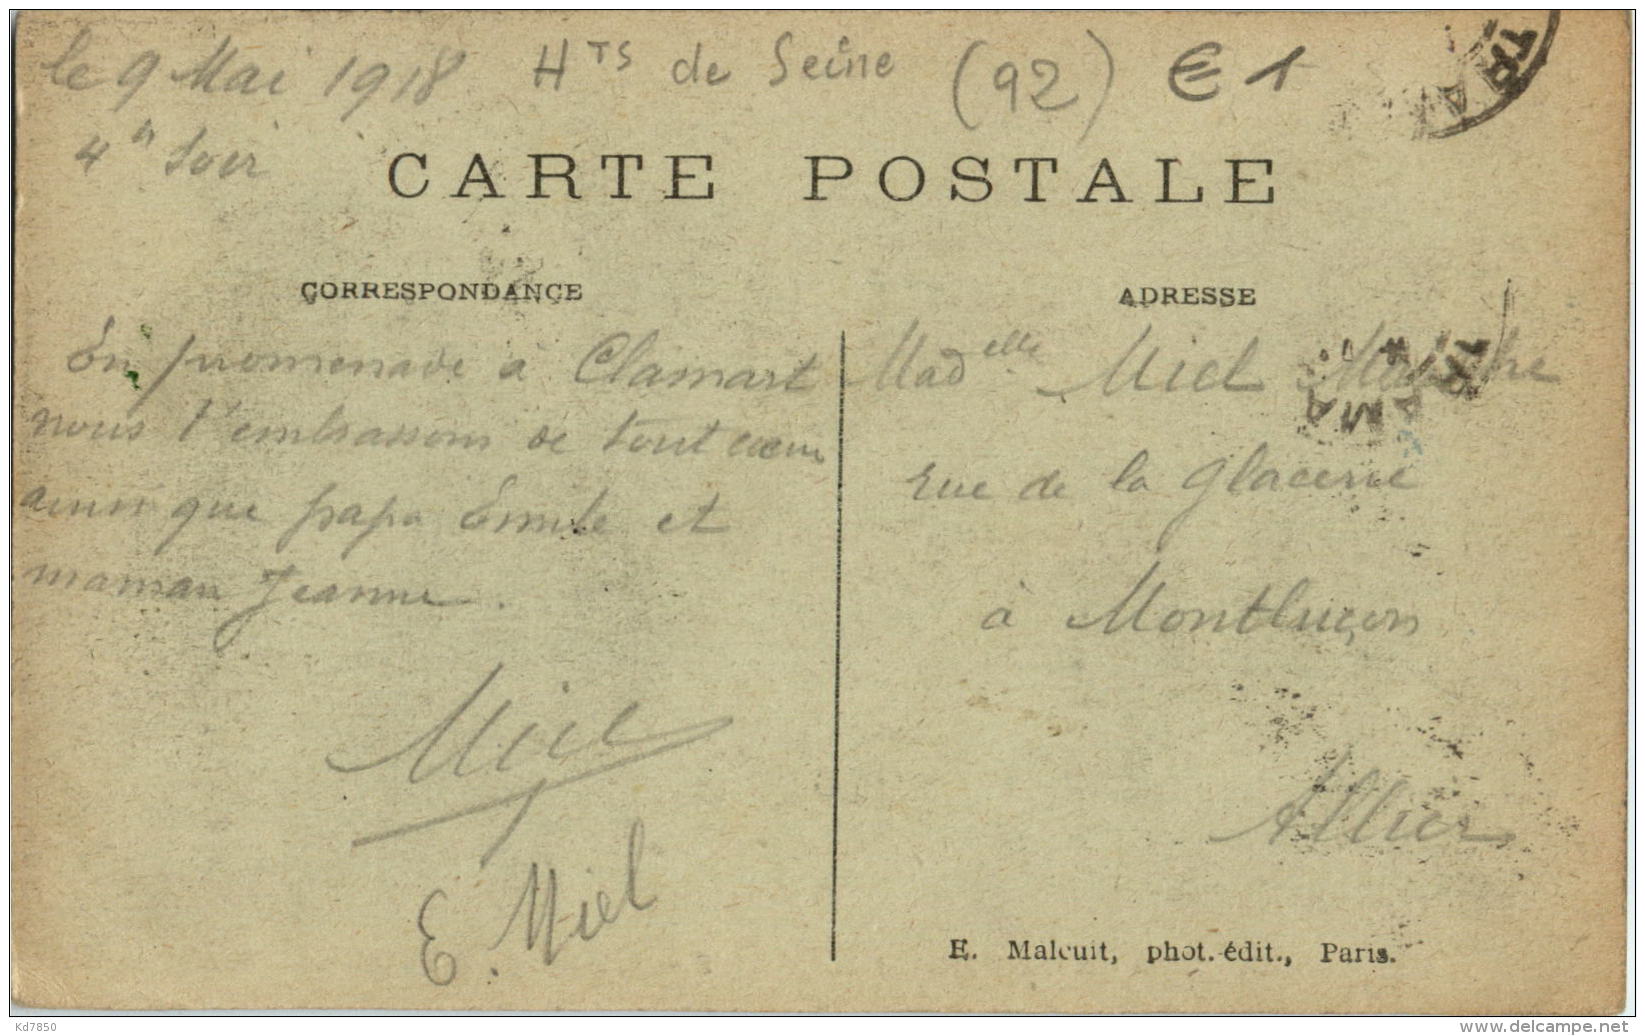 le 9 Mai 1918 Hts de Seine (92) € 1
4h soir
CARTE POSTALE
CORRESPONDANCE
ADRESSE
En promenade à Clamart
nous t'embrassons de tout cœur
ainsi que papa Emile et
maman Jeanne.
Miel
E. Miel
Madelle Miel
rue de la Glacerie
à Montluçon
Allier
E. Malcuit, phot.-édit., Paris.
Kd7850
www.delcampe.net